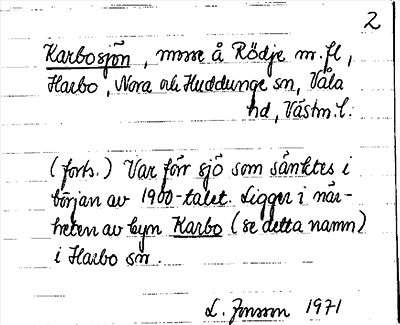 2
Karbosjön, mosse å Rödje m.fl,
Harbo, Nora och Huddunge sn, Våla
hd, Västm.l.
(forts.) Var förr sjö som sänktes i
början av 1900-talet. Ligger i när-
heten av byn Karbo (se detta namn)
i Harbo sn.
L. Jonsson 1971